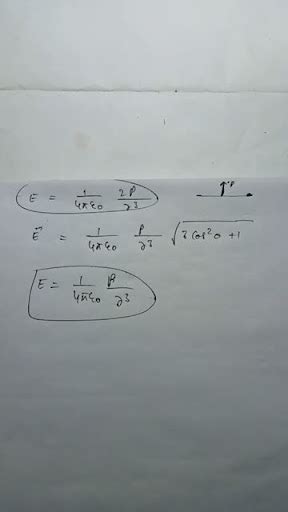 E = 1/4πε0 2P/r3
P
E⃗ = 1/4πε0 P/r3 √3 cos2θ + 1
E = 1/4πε0 P/r3